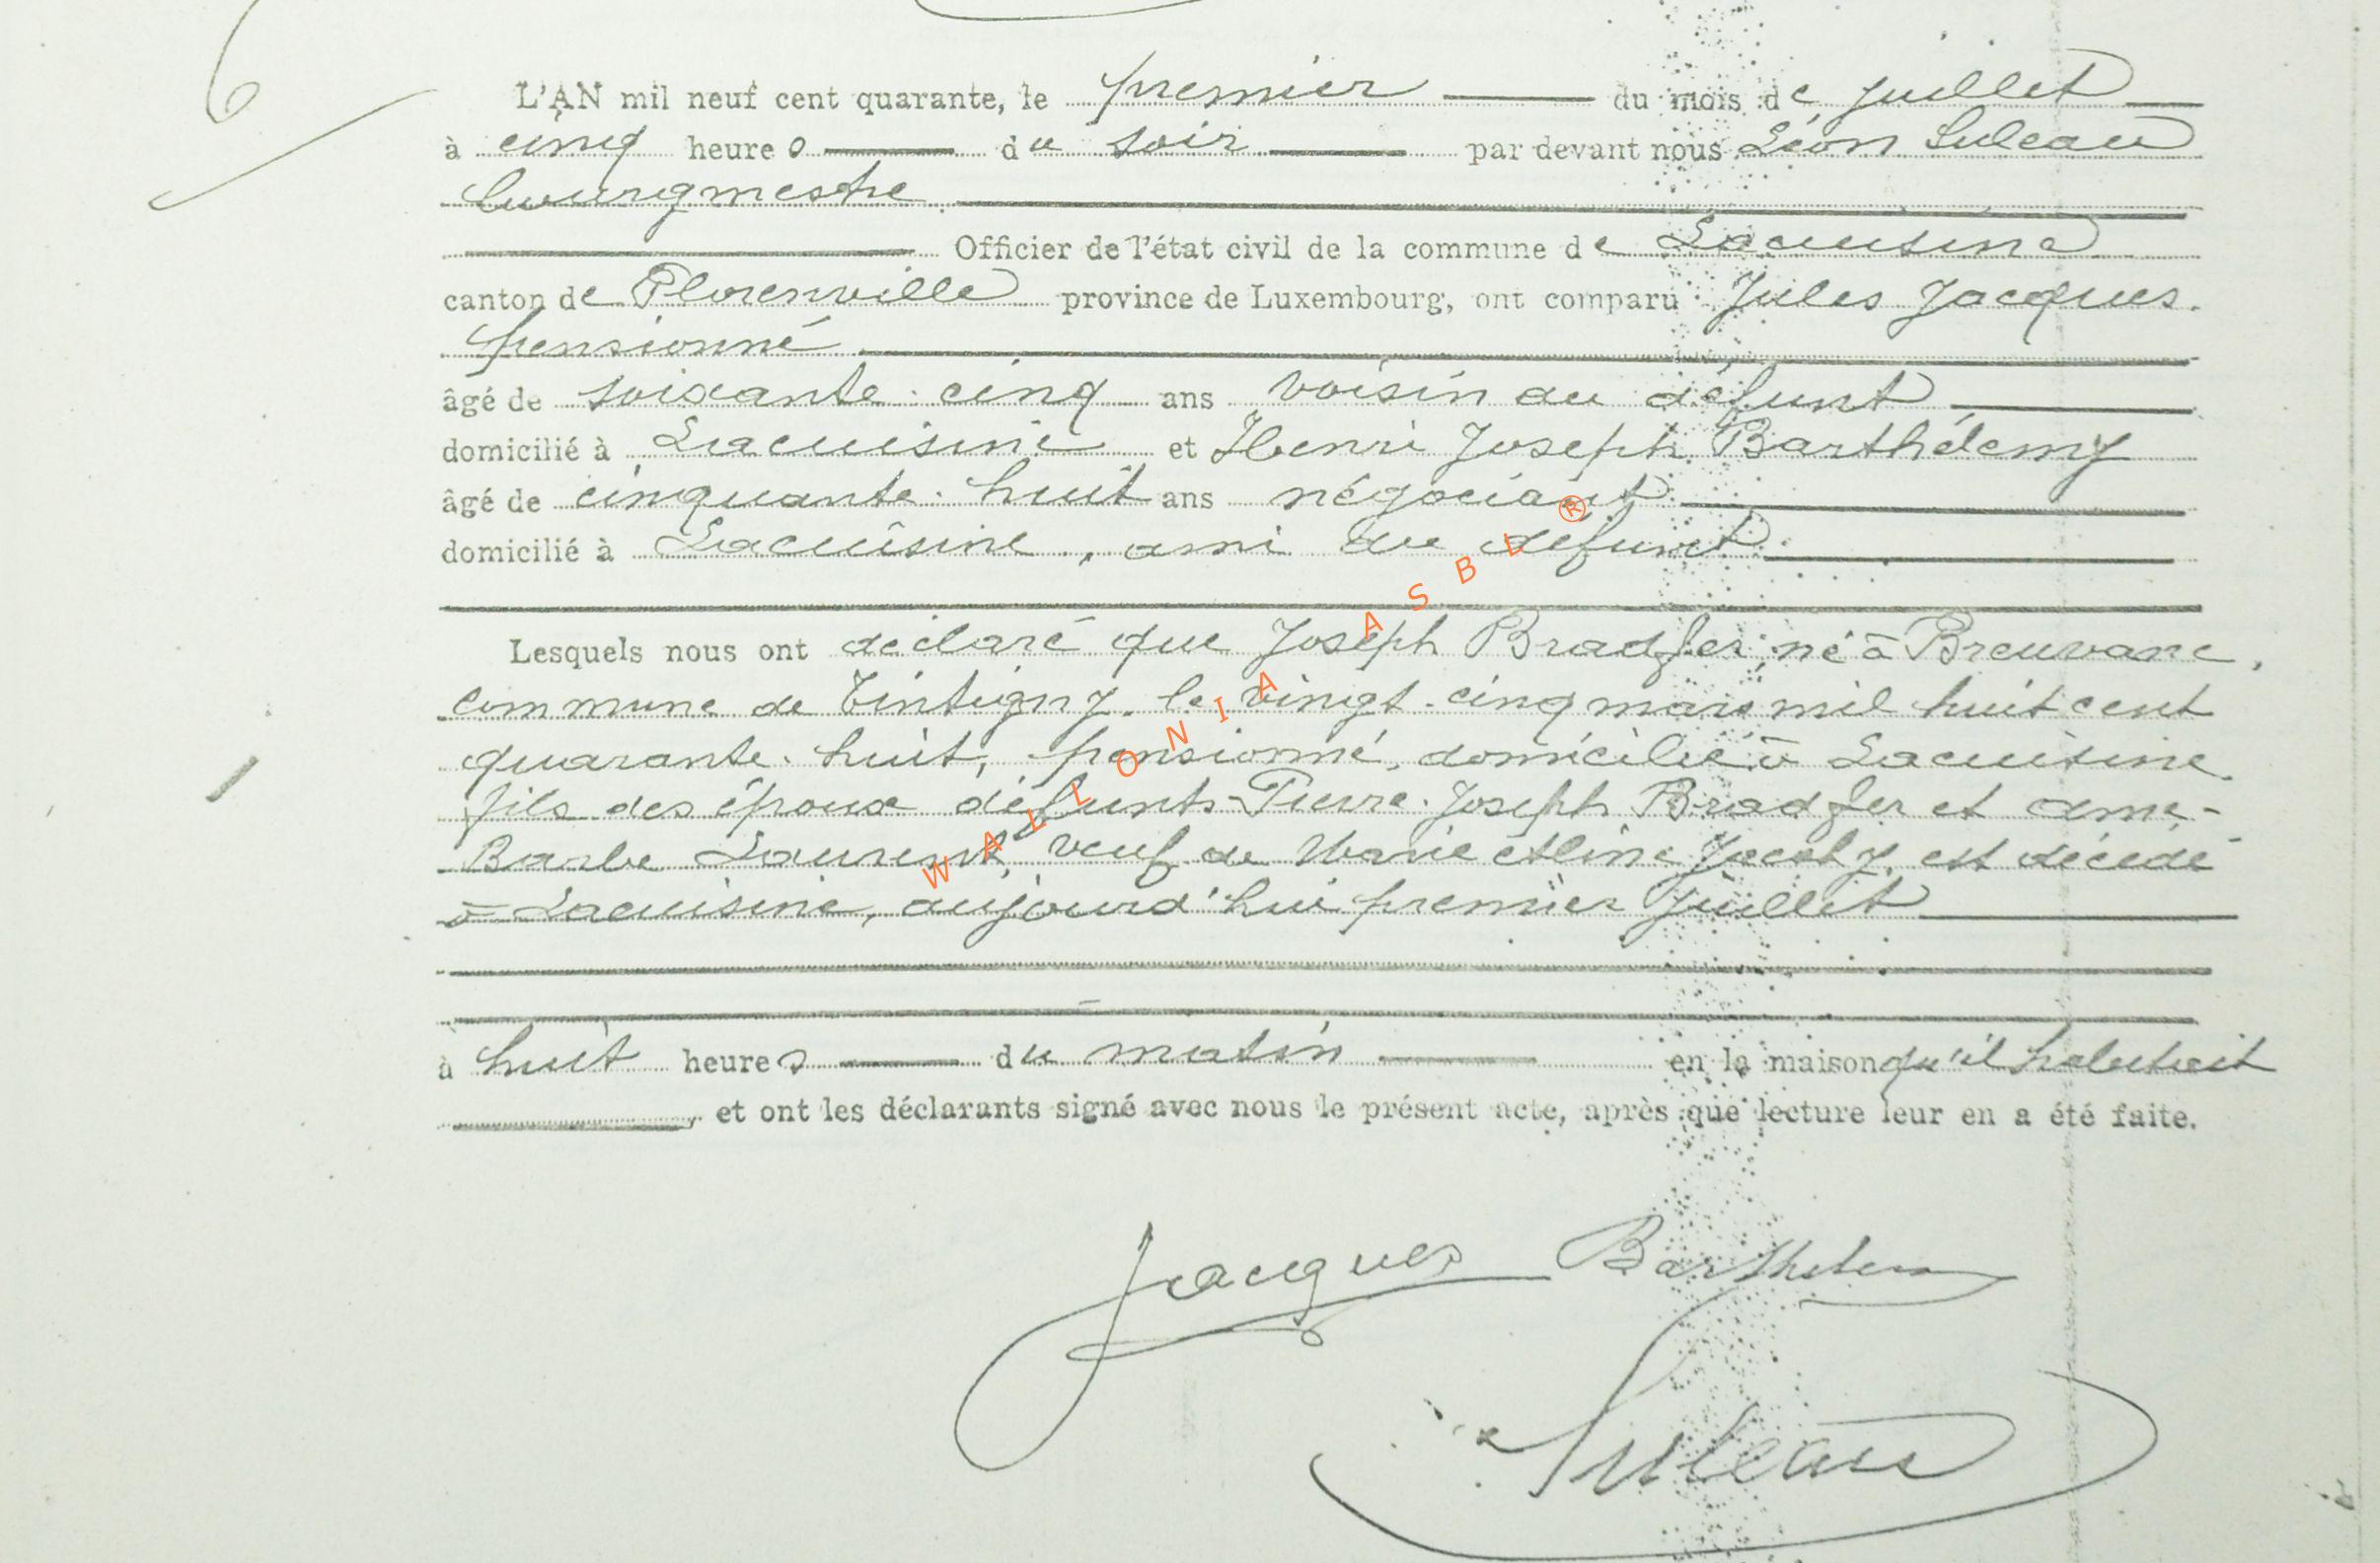 6
L'AN mil neuf cent quarante, le premier du mois de juillet
à cinq heures du soir par devant nous Léon Suleau
bourgmestre
Officier de l'état civil de la commune de Lacuisine
canton de Florenville province de Luxembourg, ont comparu Jules Jacques.
pensionné
âgé de soixante-cinq ans voisin du défunt
domicilié à Lacuisine et Henri Joseph Barthélemy
âgé de cinquante-huit ans négociant
domicilié à Lacuisine, ami du défunt
Lesquels nous ont déclaré que Joseph Bradfer, né à Breuvanne,
commune de Tintigny, le vingt-cinq mars mil huit cent
quarante-huit, pensionné, domicilié à Lacuisine.
fils des époux défunts Pierre-Joseph Bradfer et Anne-
Barbe Laurent, veuf de Marie Jacoby, est décédé
à Lacuisine, aujourd'hui premier juillet
à huit heures du matin en la maison qu'il habitait
, et ont les déclarants signé avec nous le présent acte, après que lecture leur en a été faite.
Jacques Barthélemy
Suleau
WALLONIA ASBL ®